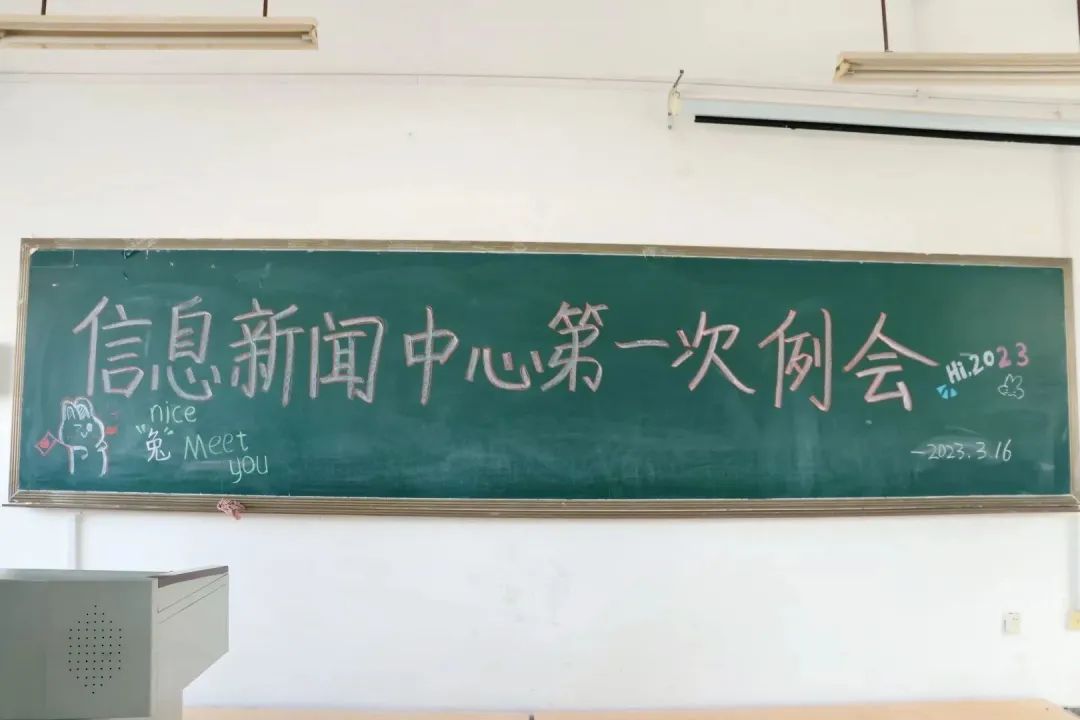 信息新闻中心第一次例会
Hi,2023
nice
"兔" Meet
you
-2023.3.16